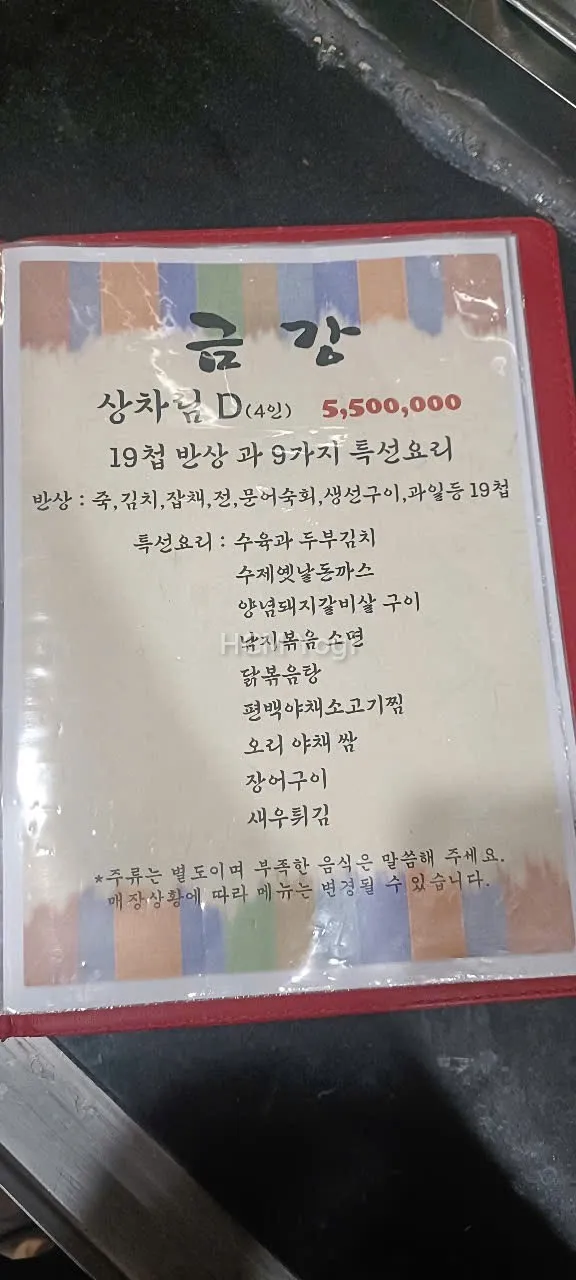 금 강
상차림 D(4인) 5,500,000
19첩 반상 과 9가지 특선요리
반상 : 죽,김치,잡채,전,문어숙회,생선구이,과일등 19첩
특선요리 : 수육과 두부김치
수제옛날돈까스
양념돼지갈비살 구이
낙지볶음 소면
닭볶음탕
편백야채소고기찜
오리 야채 쌈
장어구이
새우튀김
*주류는 별도이며 부족한 음식은 말씀해 주세요.
매장상황에 따라 메뉴는 변경될 수 있습니다.